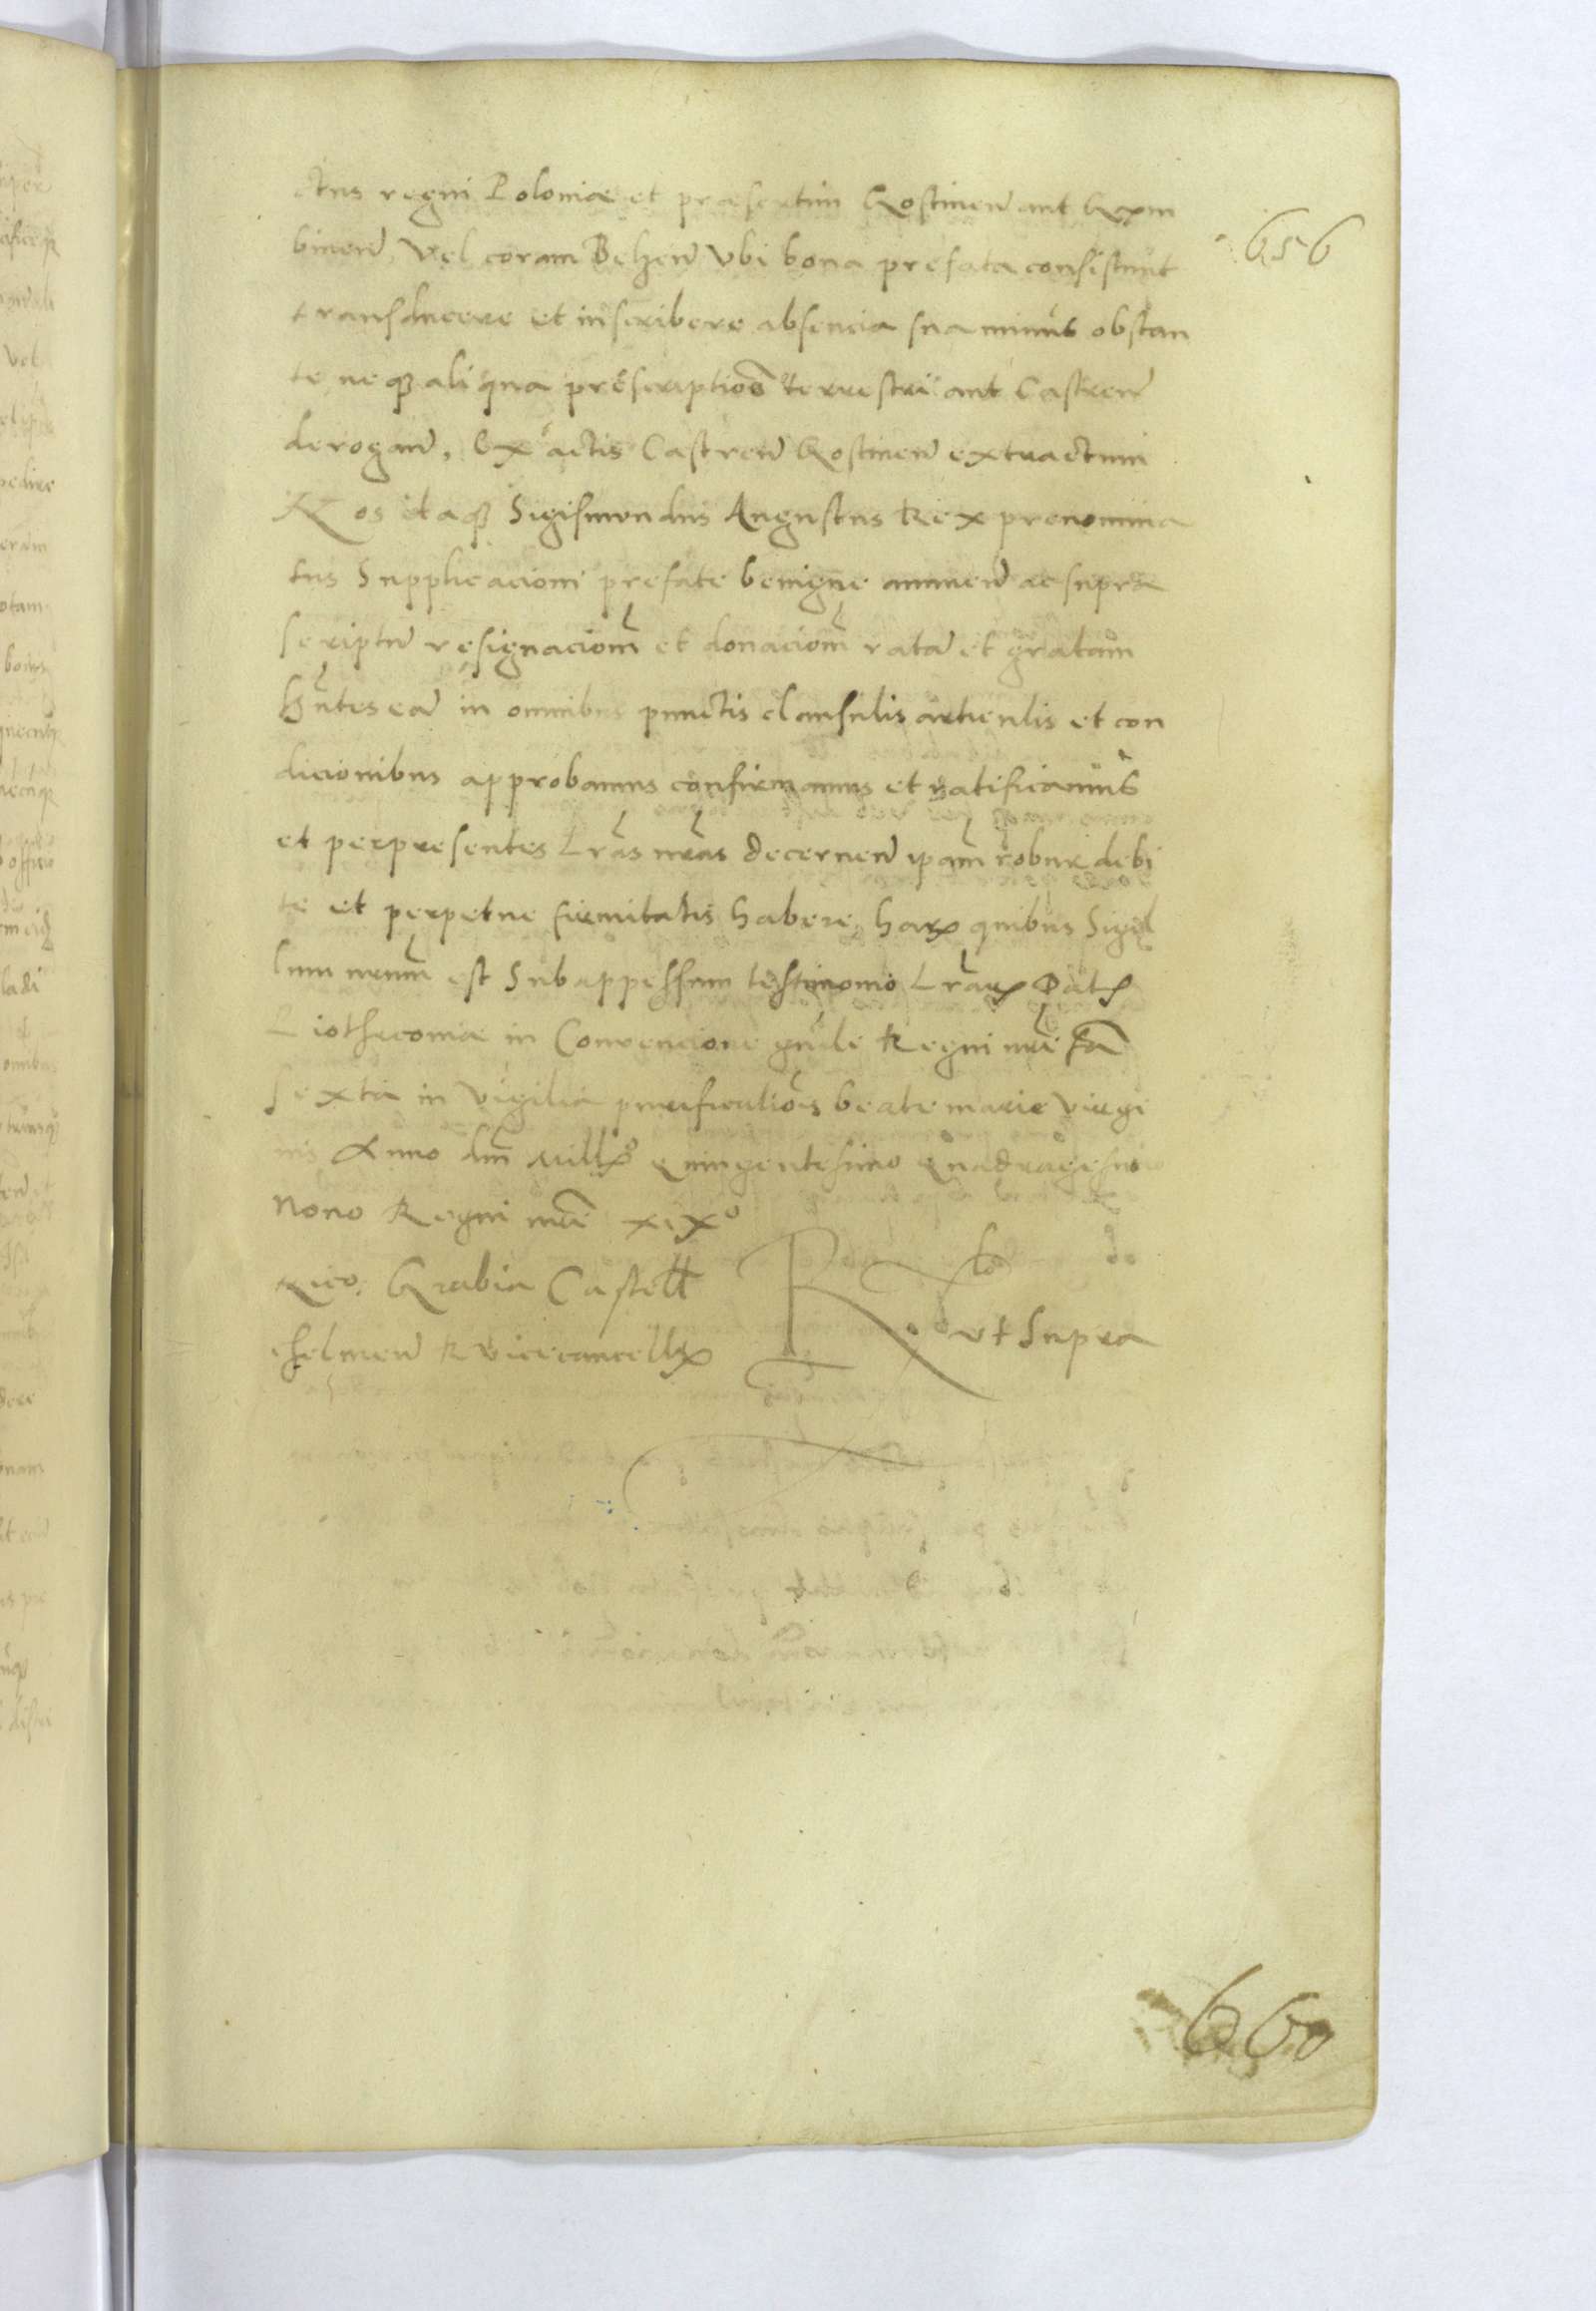 656
ctus regni Poloniæ et præsertim Gostinen aut Gem
binen vel coram Belzen Vbi bona prefata consistunt
transducere et inscribere absencia sua minus obstan
te neq3 aliqua prescriptioe terrestri aut Castren
derogan, Ex actis Castren Gostinen extractum
Nos itaq3 Sigismundus Augustus Rex prenomina
tus Supplicacioni prefate benigne annuen ac supra
scriptā resignaciom et donaciom ratā et gratam
hntes eā in omnibus punctis clausulis articulis et con
dicionibus approbamus confirmamus et ratificamus
et per presentes Lras nras decernen ipam robur debi
te et perpetue firmitatis habere, harꝝ quibus Sigil
lum nrum est Subappessum testimonio Lrarꝝ Datꝭ
Piothrcoviæ in Convencione gnale Regni nri fa
sexta in vigilia purificatiois beate marie virgi
nis Anno dni Millo Quingentesimo Quadragesimo
Nono Regni nri xixo
Nico. Grabia Castell
chelmen R Vicecancellꝝ
Rlo
vt Supra
660